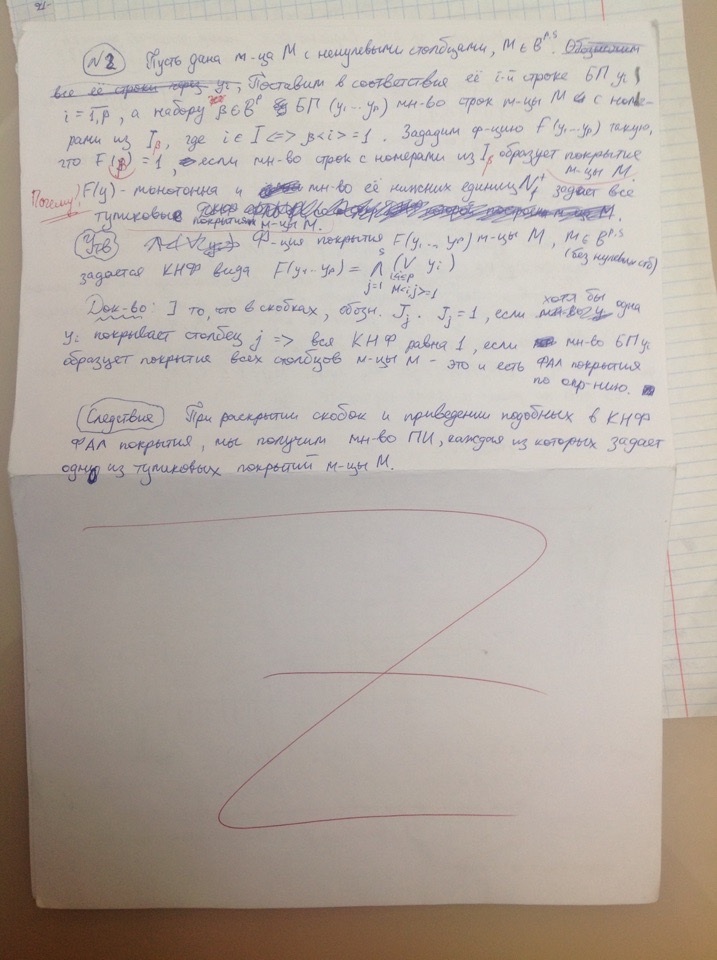 №2 Пусть дана м-ца M с ненулевыми столбцами, M ∈ B^{p,s}. Обозначим
все её строки через y_i, Поставим в соответствие её i-й строке БП y_i
i = 1,p, а набору β ∈ B^p БП (y_1...y_p) мн-во строк м-цы M с номе-
рами из I_β, где i ∈ I <=> β<i> = 1. Зададим ф-цию F(y_1...y_p) такую,
что F(β) = 1, если мн-во строк с номерами из I_β образует покрытие
м-цы M.
Почему? F(y) - монотонная и мн-во её нижних единиц N_f^+ задает все
тупиковые покрытия м-цы M.
Утв Ф-ция покрытия F(y_1...y_p) м-цы M, M ∈ B^{p,s}
(без нулевых стб)
задаётся КНФ вида F(y_1...y_p) = ⋀_{j=1}^{s} (⋁_{1≤i≤p, M<i,j>=1} y_i)
Док-во: ] то, что в скобках, обозн. J_j. J_j = 1, если хотя бы одна
y_i покрывает столбец j => вся КНФ равна 1, если мн-во БП y_i
образует покрытия всех столбцов м-цы M - это и есть ФАЛ покрытия
по опр-нию.
Следствие При раскрытии скобок и приведении подобных в КНФ
ФАЛ покрытия, мы получим мн-во ПИ, каждая из которых задаёт
одну из тупиковых покрытий м-цы M.
Z